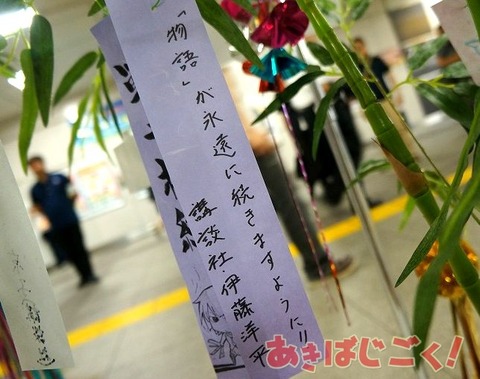 「物語」が永遠に続きますように!!
講談社伊藤洋平
あきばじごく!